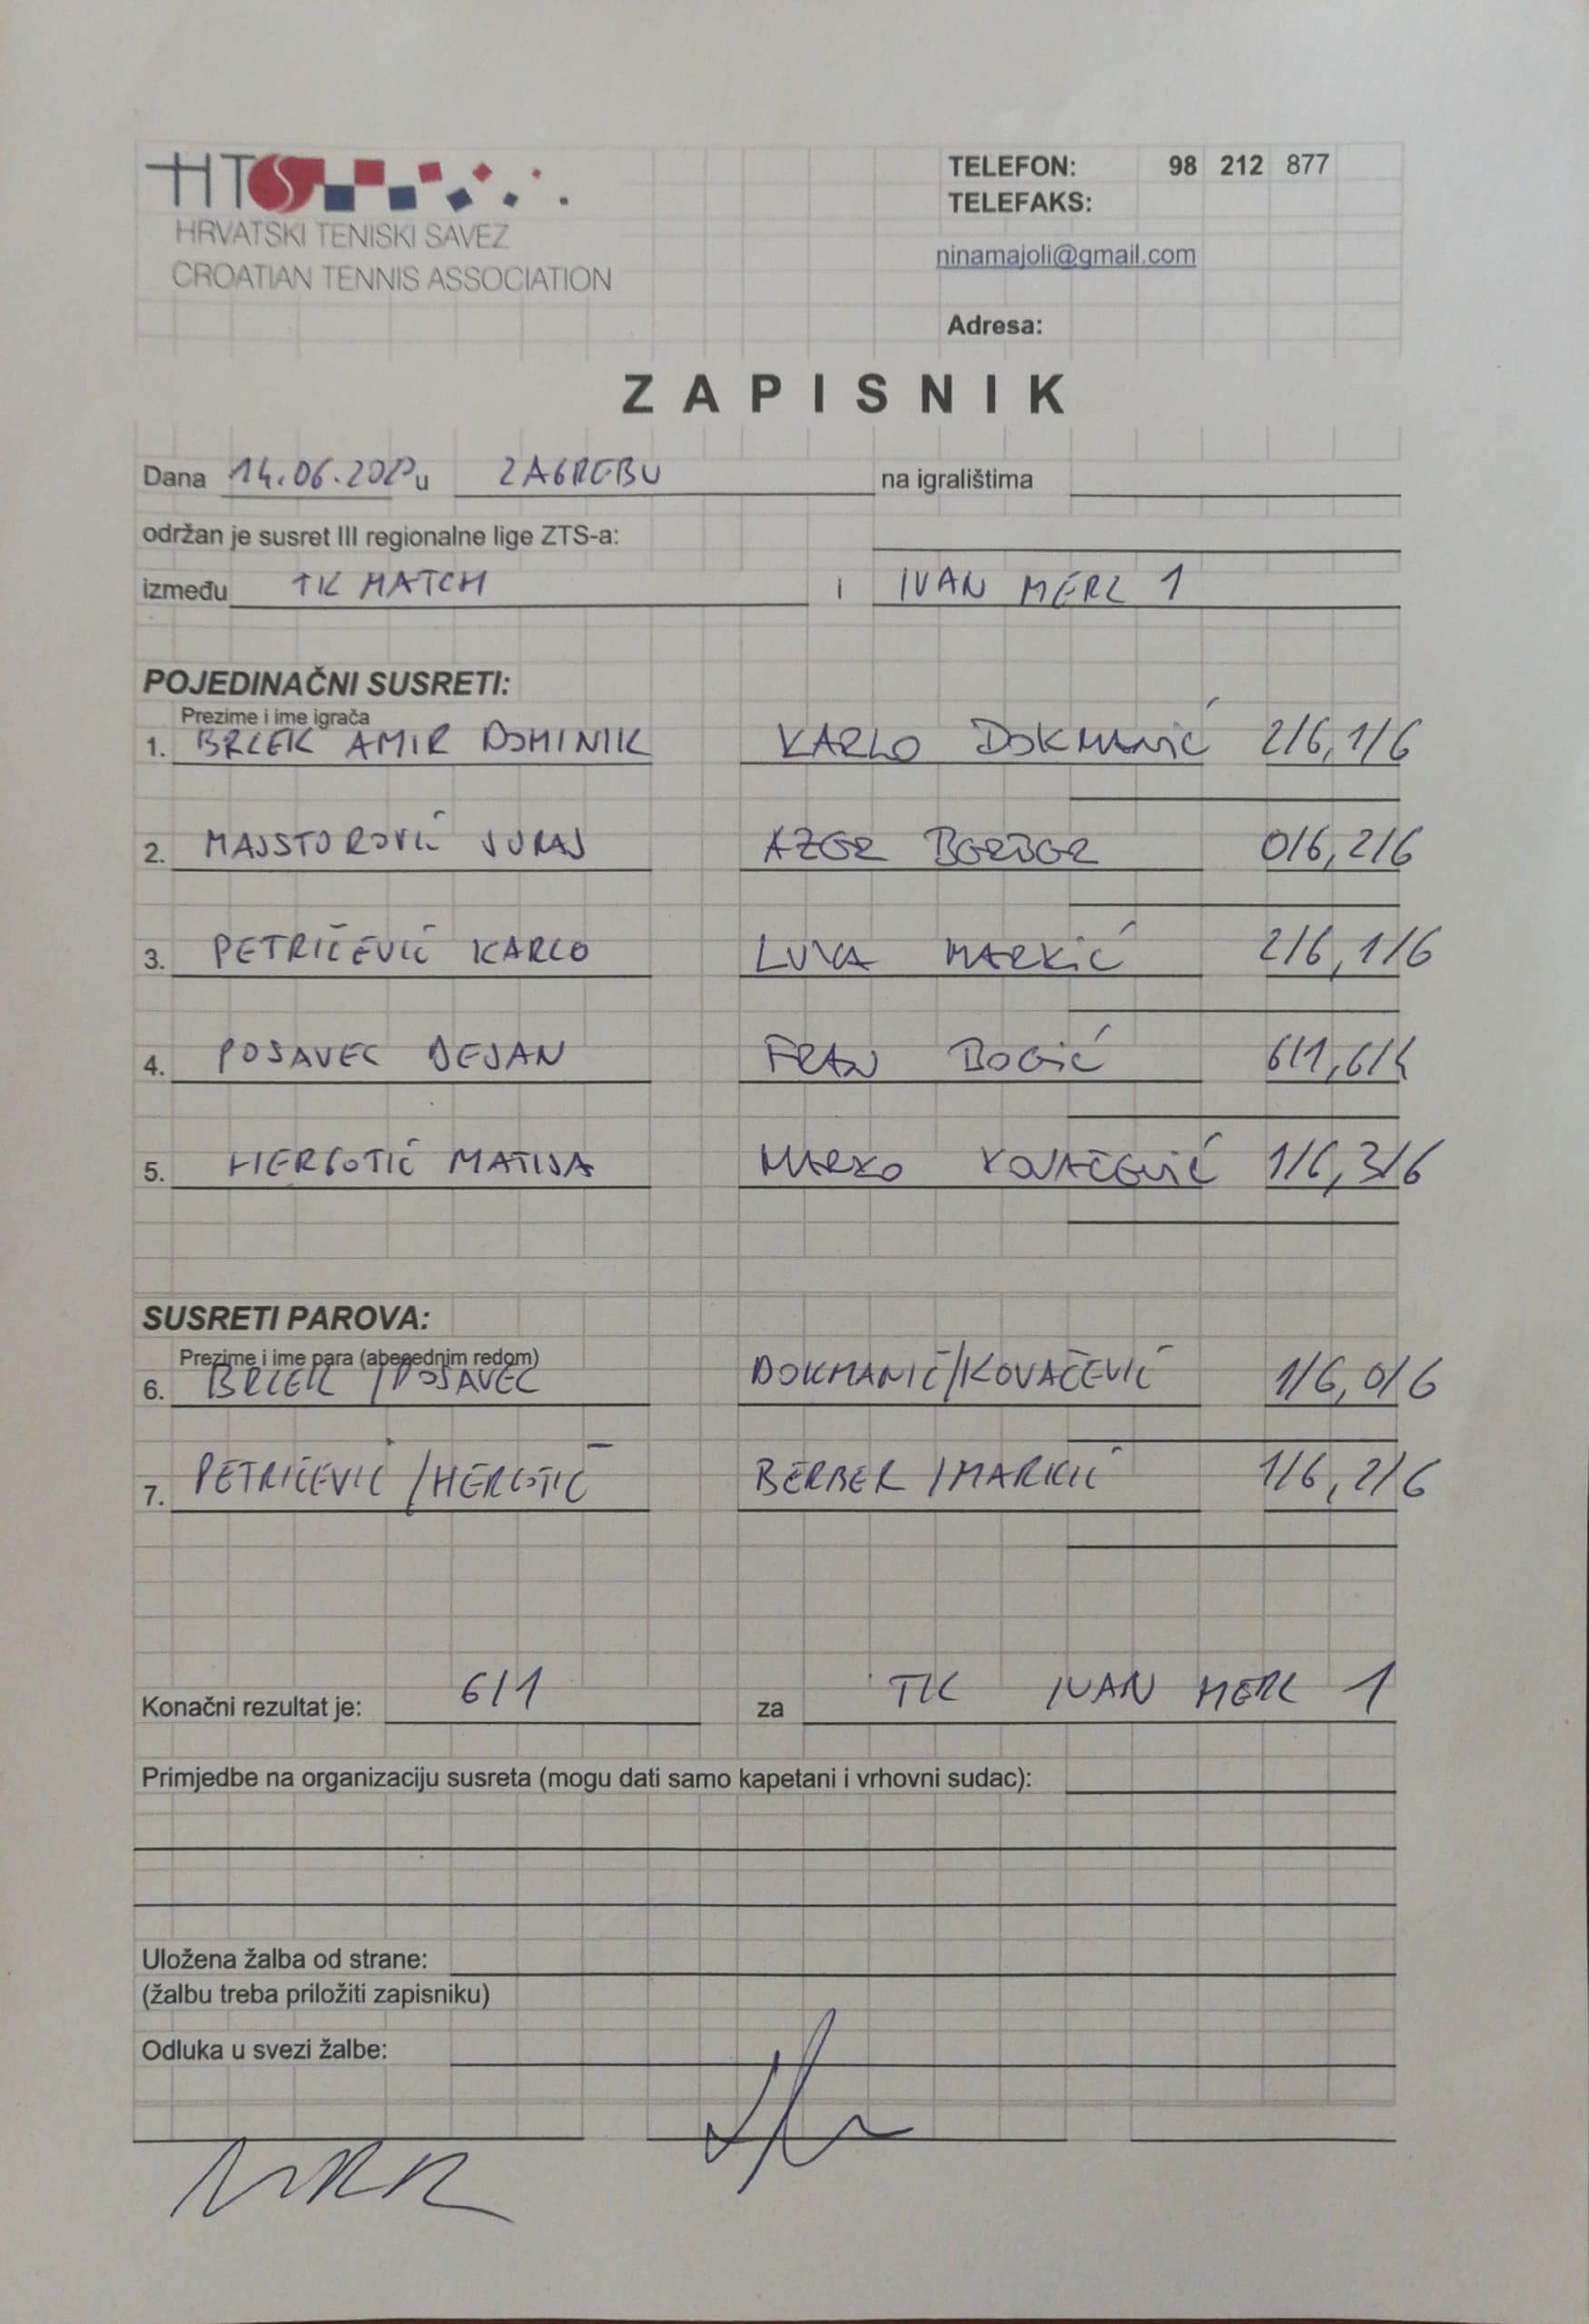 HTS
HRVATSKI TENISKI SAVEZ
CROATIAN TENNIS ASSOCIATION
TELEFON: 98 212 877
TELEFAKS:
ninamajoli@gmail.com
Adresa:
ZAPISNIK
Dana 14.06.2020 u ZAGREBU na igralištima
održan je susret III regionalne lige ZTS-a:
između TK MATCH i IVAN MERL 1
POJEDINAČNI SUSRETI:
Prezime i ime igrača
1. BRLEK AMIR DOMINIK KARLO DOKMANIĆ 2/6, 1/6
2. MAJSTOROVIĆ JURAJ BERBER 0/6, 2/6
3. PETRIČEVIĆ KARLO LUKA MARKIĆ 2/6, 1/6
4. POSAVEC DEJAN FRAN BOGIĆ 6/1, 6/4
5. HERGOTIĆ MATIJA MARKO KOVAČEVIĆ 1/6, 3/6
SUSRETI PAROVA:
Prezime i ime para (abecednim redom)
6. BRLEK / POSAVEC DOKMANIĆ/KOVAČEVIĆ 1/6, 0/6
7. PETRIČEVIĆ / HERGOTIĆ BERBER / MARKIĆ 1/6, 2/6
Konačni rezultat je: 6/1 za TK IVAN MERL 1
Primjedbe na organizaciju susreta (mogu dati samo kapetani i vrhovni sudac):
Uložena žalba od strane:
(žalbu treba priložiti zapisniku)
Odluka u svezi žalbe: